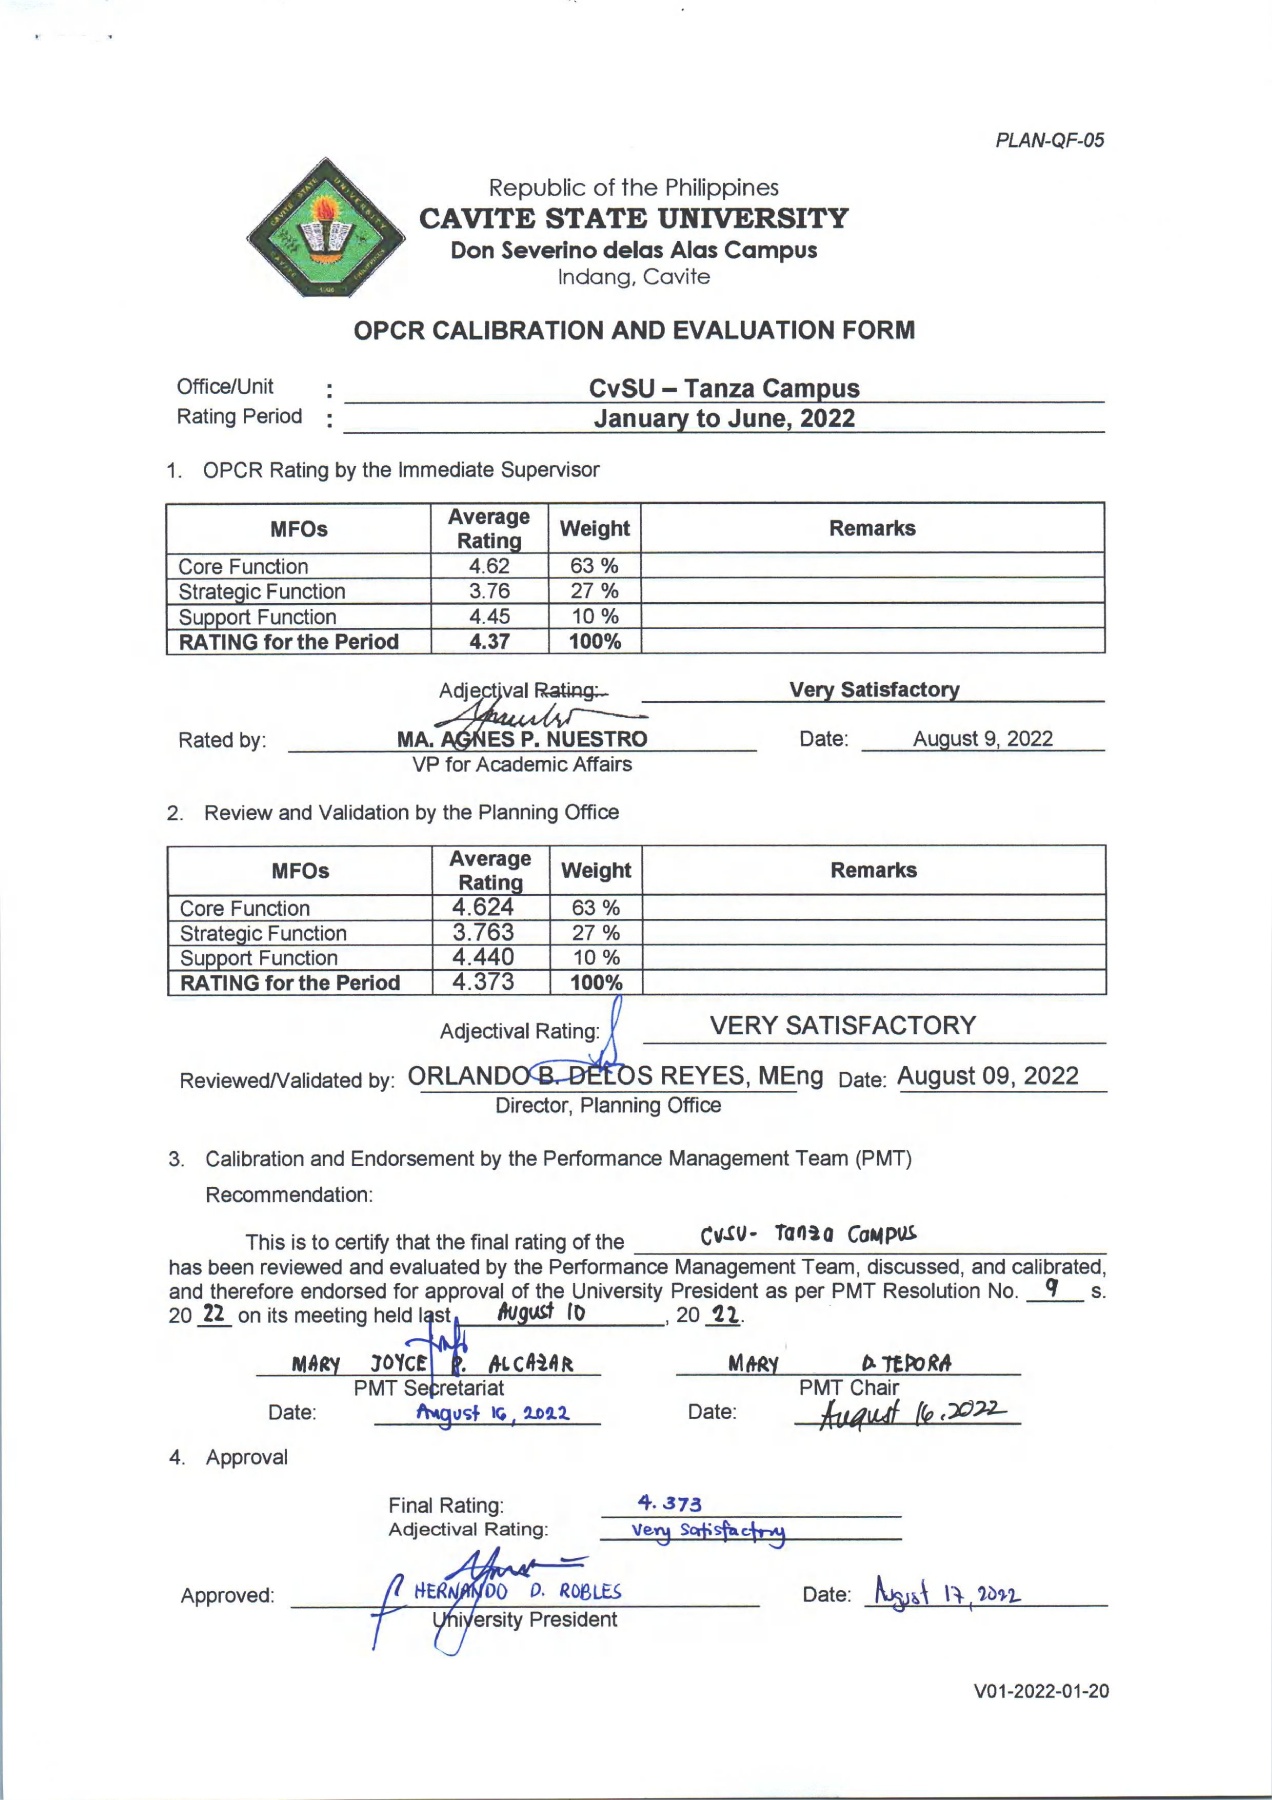 PLAN-QF-05
Republic of the Philippines
CAVITE STATE UNIVERSITY
Don Severino delas Alas Campus
Indang, Cavite
OPCR CALIBRATION AND EVALUATION FORM
Office/Unit : CvSU – Tanza Campus
Rating Period : January to June, 2022
1. OPCR Rating by the Immediate Supervisor
MFOs Average Rating Weight Remarks
Core Function 4.62 63 %
Strategic Function 3.76 27 %
Support Function 4.45 10 %
RATING for the Period 4.37 100%
Adjectival Rating: Very Satisfactory
Rated by: MA. AGNES P. NUESTRO Date: August 9, 2022
VP for Academic Affairs
2. Review and Validation by the Planning Office
MFOs Average Rating Weight Remarks
Core Function 4.624 63 %
Strategic Function 3.763 27 %
Support Function 4.440 10 %
RATING for the Period 4.373 100%
Adjectival Rating: VERY SATISFACTORY
Reviewed/Validated by: ORLANDO B. DELOS REYES, MEng Date: August 09, 2022
Director, Planning Office
3. Calibration and Endorsement by the Performance Management Team (PMT)
Recommendation:
This is to certify that the final rating of the CvSU- Tanza Campus
has been reviewed and evaluated by the Performance Management Team, discussed, and calibrated,
and therefore endorsed for approval of the University President as per PMT Resolution No. 9 s.
20 22 on its meeting held last August 10, 20 22.
MARY JOYCE P. ALCAZAR MARY D. TEPORA
PMT Secretariat PMT Chair
Date: August 16, 2022 Date: August 16, 2022
4. Approval
Final Rating: 4.373
Adjectival Rating: Very Satisfactory
Approved: HERNANDO D. ROBLES Date: August 17, 2022
University President
V01-2022-01-20